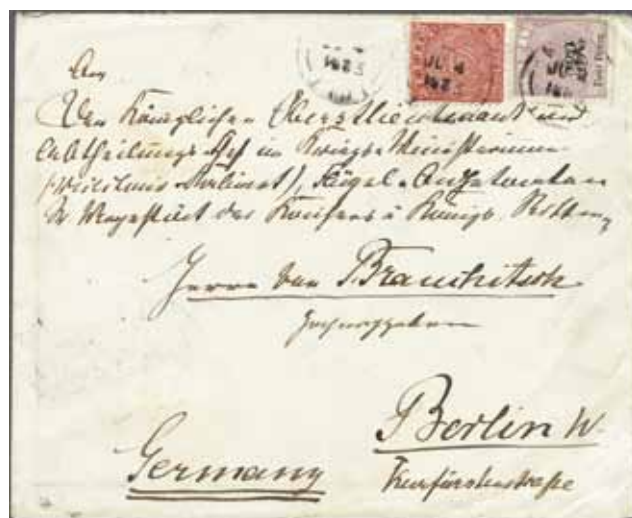 An
Den Königlichen Oberstlieutenant und
Abtheilungs-Chef im Kriegs-Ministerium
Flügel-Adjutanten
Sr Majestät des Kaisers u Königs, Ritter
Herrn von Brauchitsch
Hochwohlgeboren
Berlin W.
Germany
Kurfürstenstraße